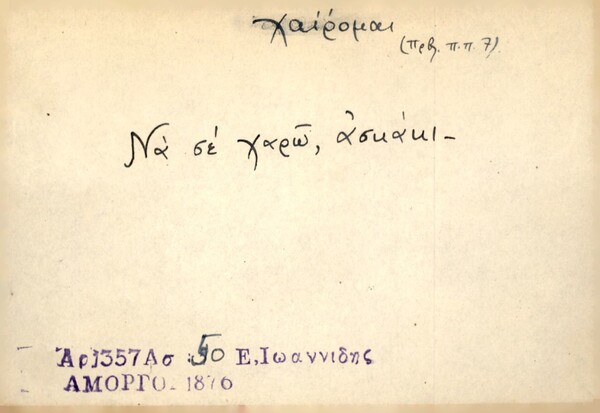 χαίρομαι
(πρβ. π.π. 7).
Νὰ σὲ χαρῶ, ἀσκάκι_
Ἀρ 1357 Ασ 50 Ε, Ιωαννιδης
ΑΜΟΡΓΟ_ 1876